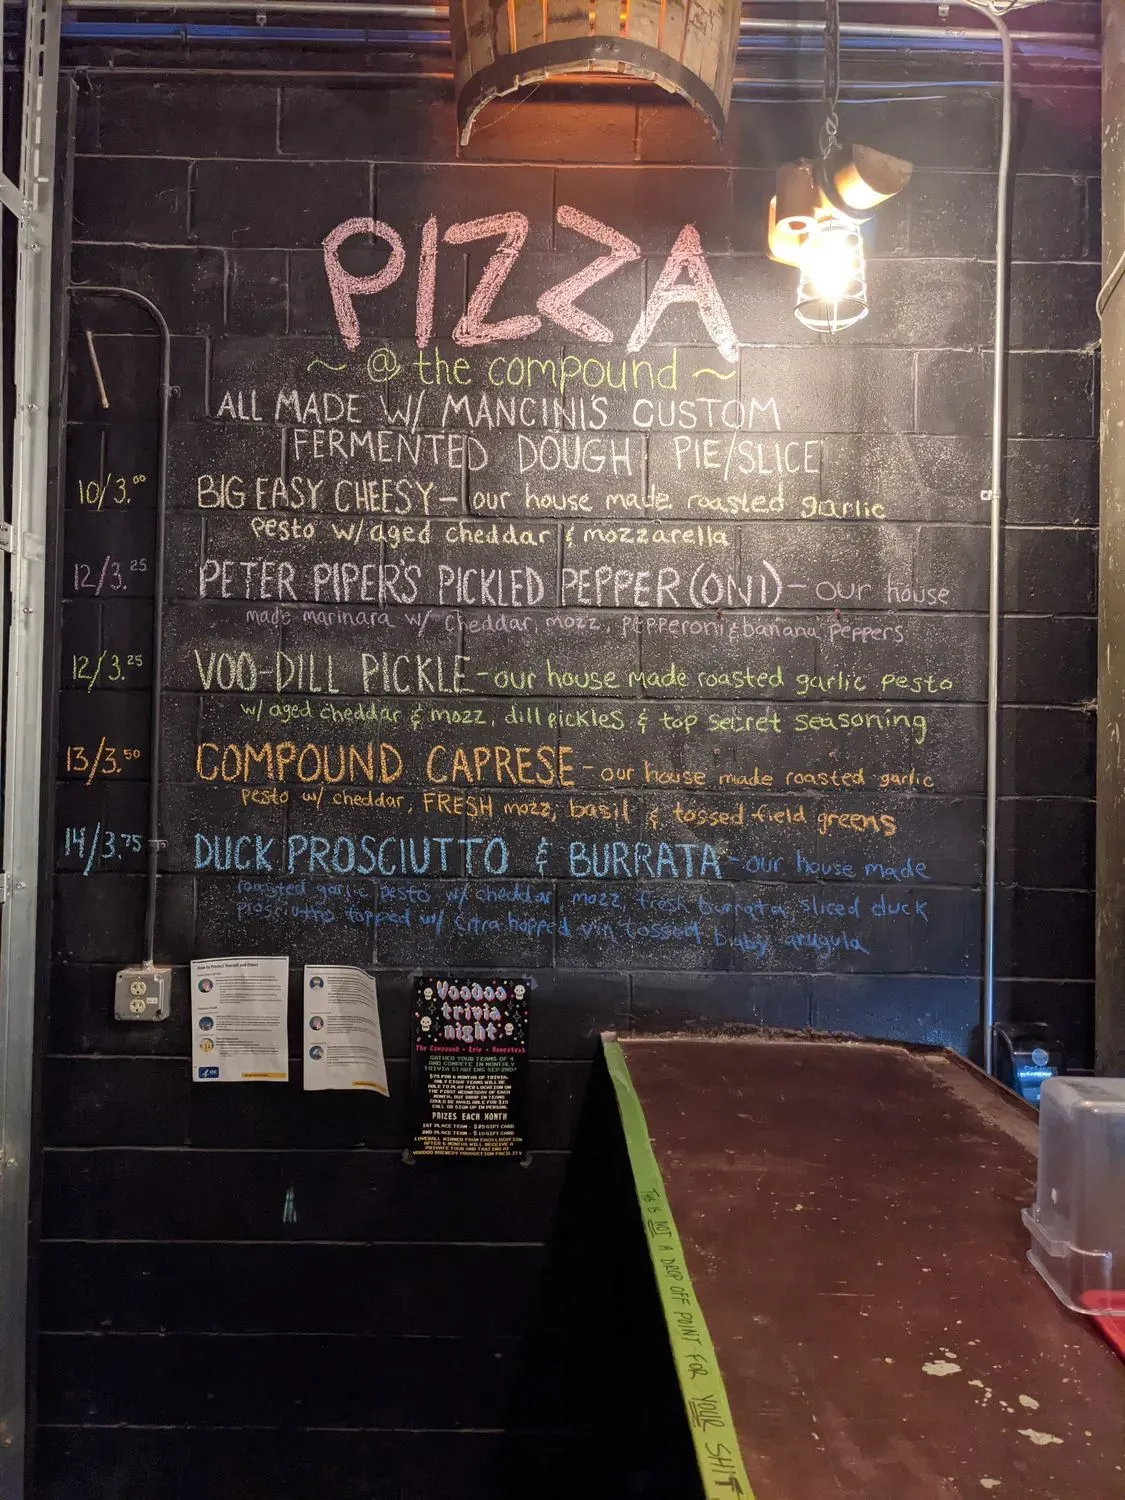 PIZZA
~ @ the compound ~
ALL MADE W/ MANCINI'S CUSTOM
FERMENTED DOUGH PIE/SLICE
10/3.00 BIG EASY CHEESY - our house made roasted garlic
pesto w/ aged cheddar & mozzarella
12/3.25 PETER PIPER'S PICKLED PEPPER (ONI) - our house
made marinara w/ cheddar, mozz, pepperoni & banana peppers
12/3.25 VOO-DILL PICKLE - our house made roasted garlic pesto
w/ aged cheddar & mozz, dill pickles & top secret seasoning
13/3.50 COMPOUND CAPRESE - our house made roasted garlic
pesto w/ cheddar, FRESH mozz, basil & tossed field greens
14/3.75 DUCK PROSCIUTTO & BURRATA - our house made
roasted garlic pesto w/ cheddar mozz, fresh burrata, sliced duck
prosciutto topped w/ citra hopped vin tossed baby arugula
How to Protect Yourself and Others
CDC
Voodoo
trivia
night
The Compound • Erie • Homestead
GATHER YOUR TEAMS OF 4
AND COMPETE IN MONTHLY
TRIVIA STARTING SEP 2ND!
$75 FOR 6 MONTHS OF TRIVIA.
ONLY EIGHT TEAMS WILL BE
ABLE TO PLAY PER LOCATION ON
THE FIRST WEDNESDAY OF EACH
MONTH, BUT DROP IN TEAMS
COULD BE AVAILABLE FOR $15
CALL OR SIGN UP IN PERSON.
PRIZES EACH MONTH
1ST PLACE TEAM - $25 GIFT CARD
2ND PLACE TEAM - $10 GIFT CARD
OVERALL WINNER FROM EACH LOCATION
AFTER 6 MONTHS WILL RECEIVE A
PRIVATE TOUR AND TASTING AT
VOODOO BREWERY PRODUCTION FACILITY
THIS IS NOT A DROP OFF POINT FOR YOUR SHIT